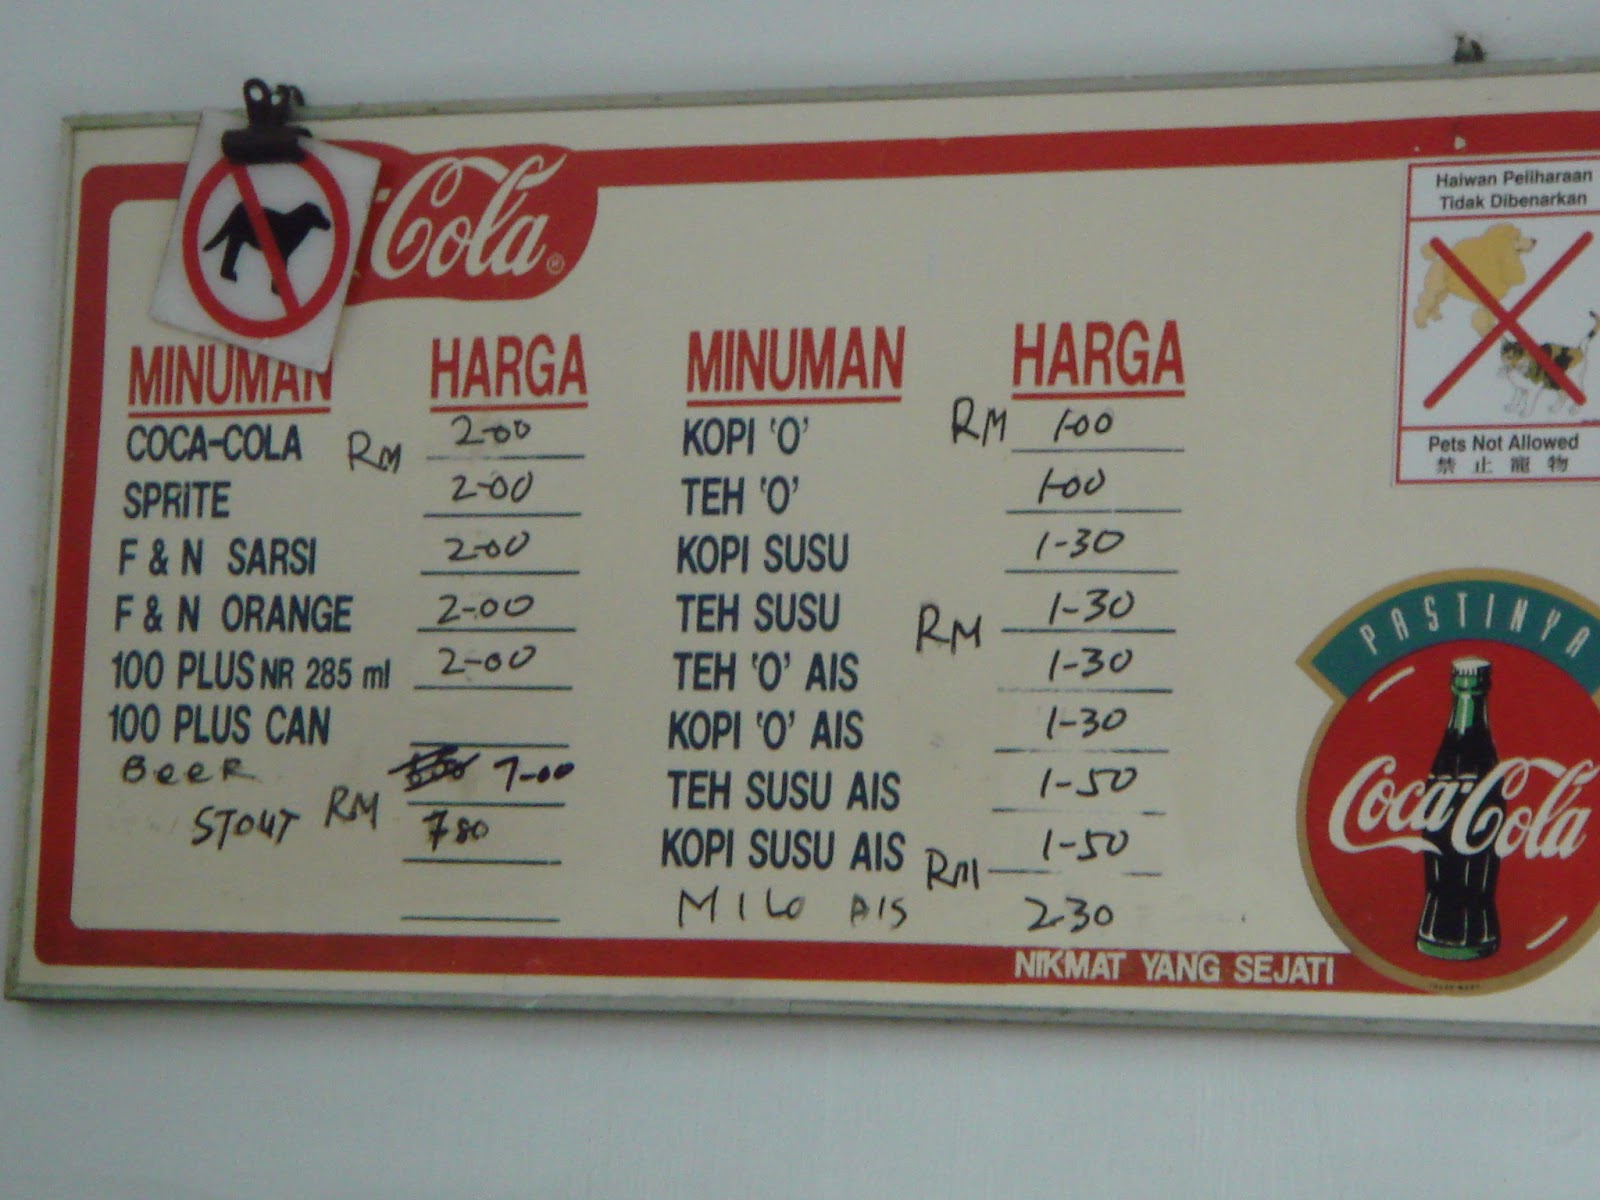 Cola®
MINUMAN HARGA
COCA-COLA RM 2-00
SPRITE 2-00
F & N SARSI 2-00
F & N ORANGE 2-00
100 PLUS NR 285 ml 2-00
100 PLUS CAN
BEER 7-00
STOUT RM 780
MINUMAN HARGA
KOPI 'O' RM 1-00
TEH 'O' 1-00
KOPI SUSU 1-30
TEH SUSU RM 1-30
TEH 'O' AIS 1-30
KOPI 'O' AIS 1-30
TEH SUSU AIS 1-50
KOPI SUSU AIS RM 1-50
MILO AIS 2-30
Haiwan Peliharaan
Tidak Dibenarkan
Pets Not Allowed
禁止寵物
PASTINYA
Coca-Cola
NIKMAT YANG SEJATI